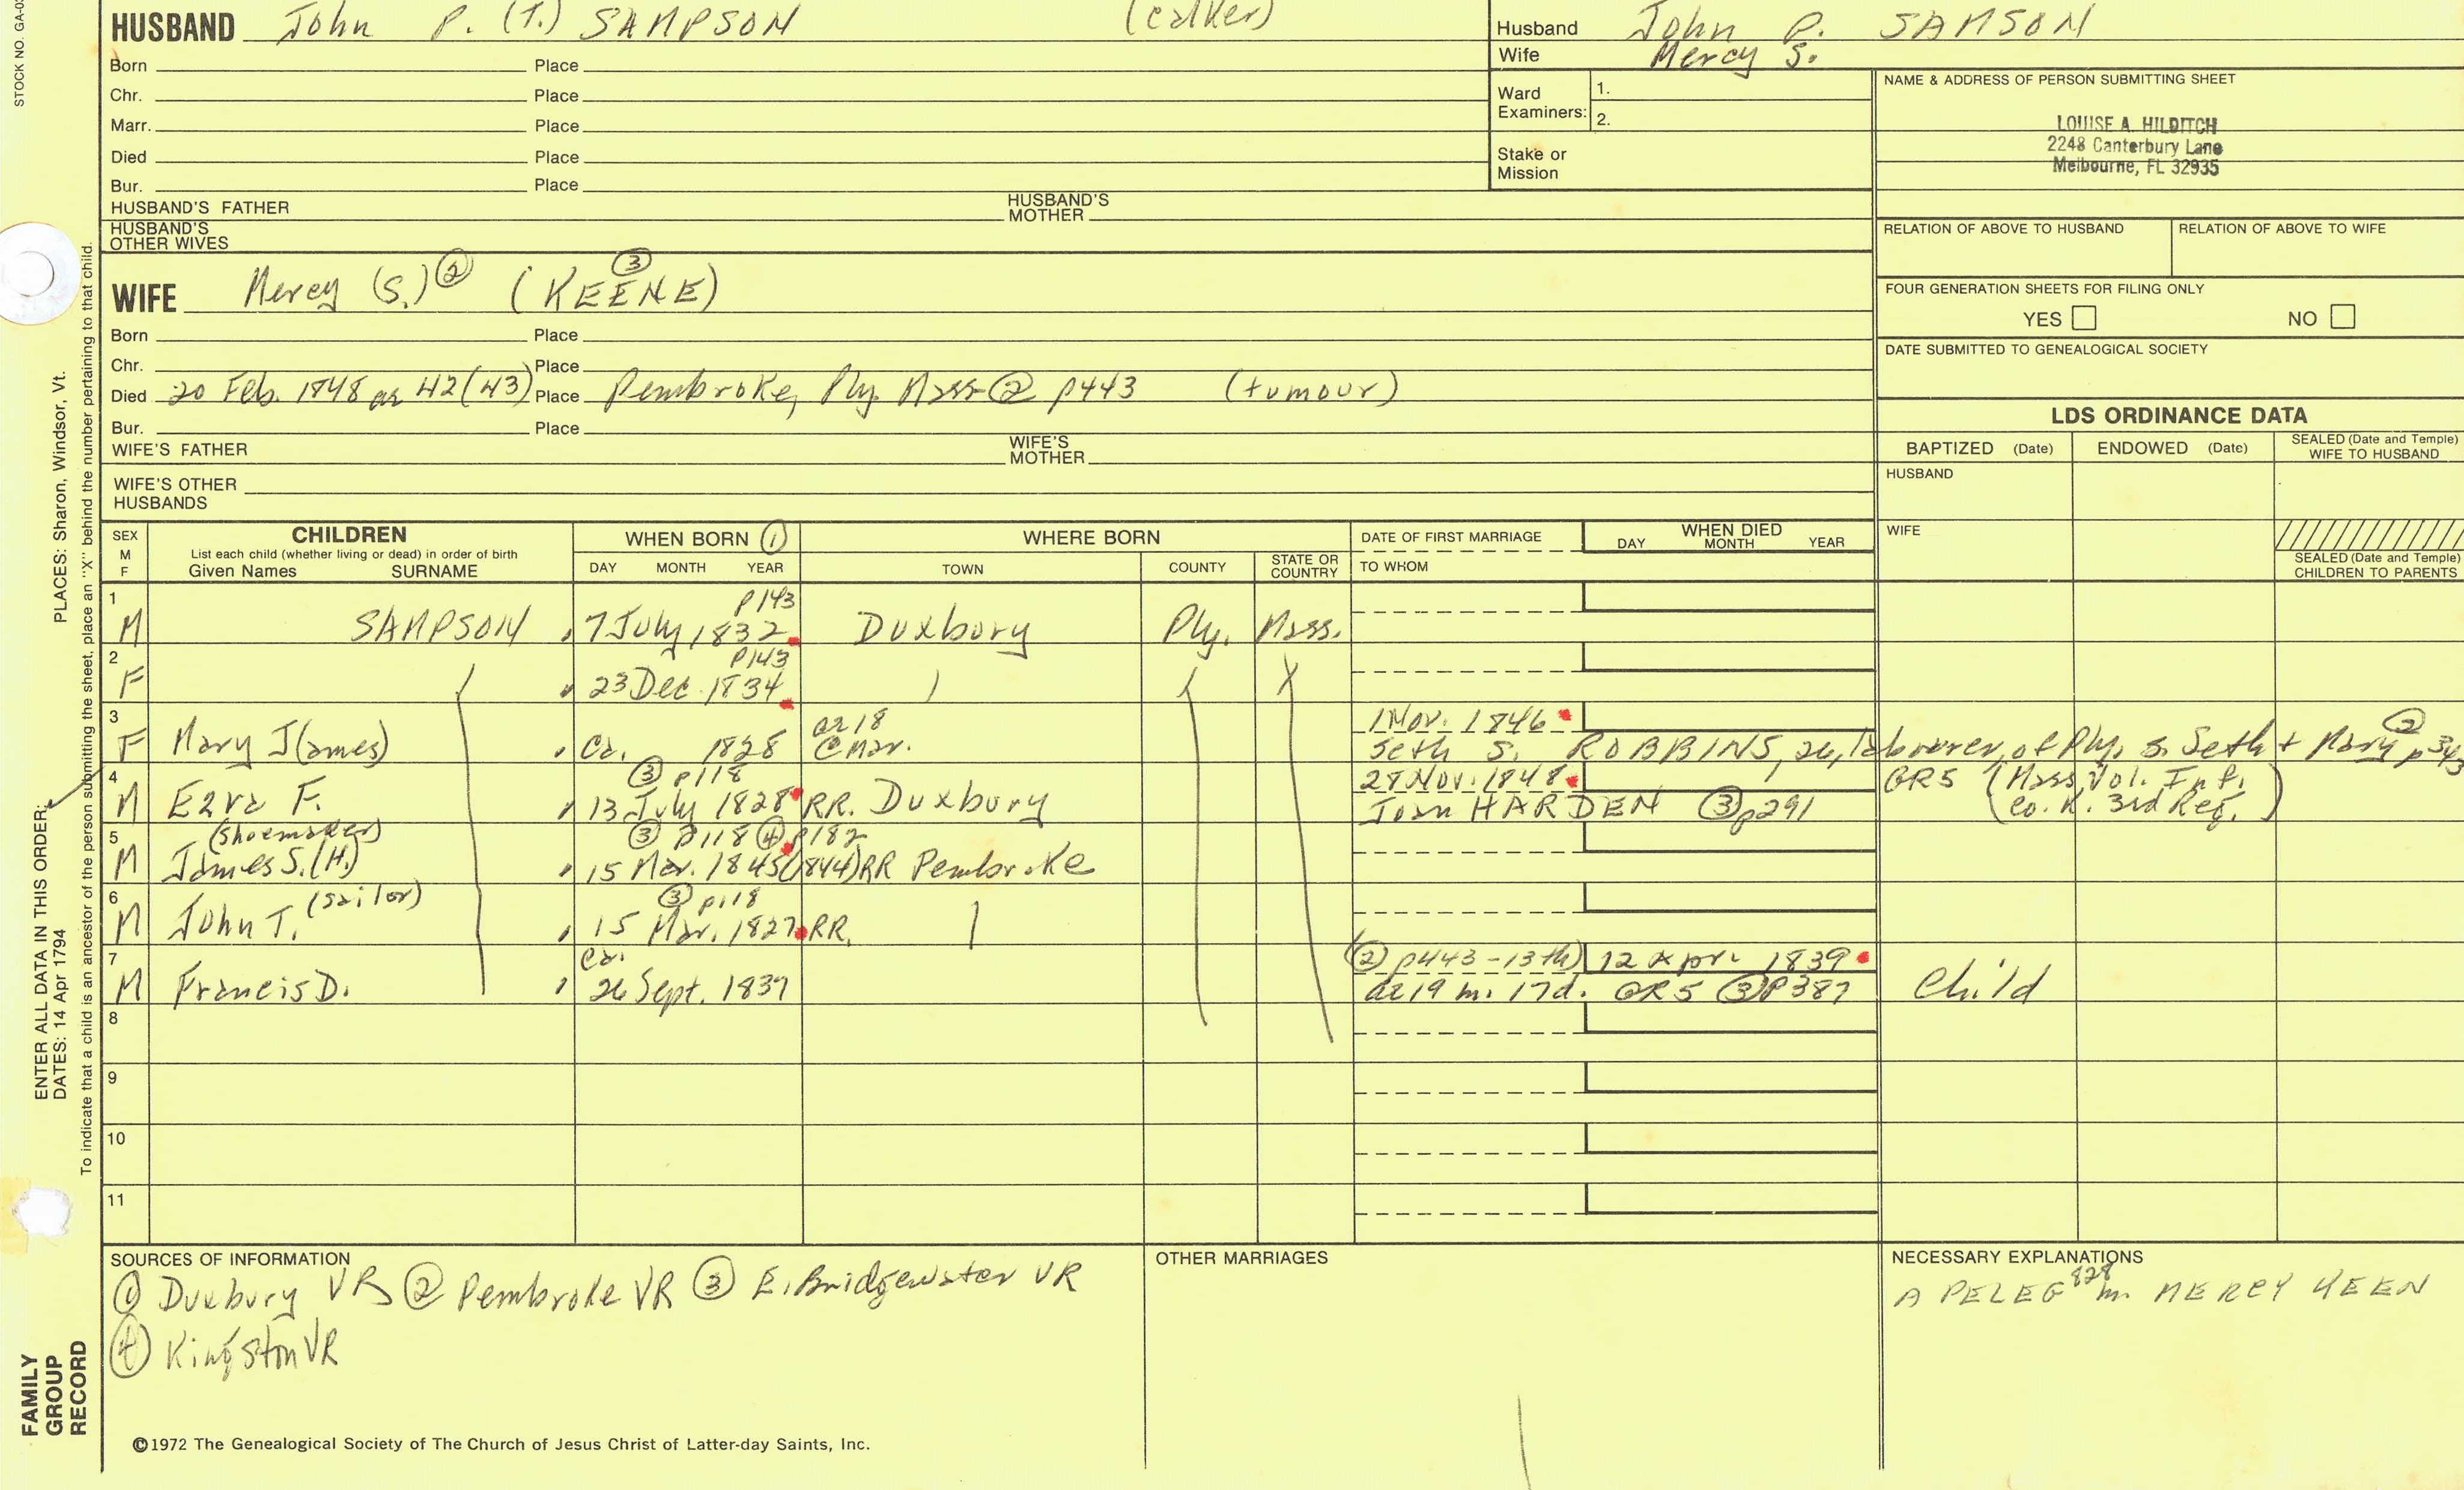 STOCK NO. GA-0
HUSBAND John P. (T.) SAMPSON (calker)
Born Place
Chr. Place
Marr. Place
Died Place
Bur. Place
HUSBAND'S FATHER HUSBAND'S MOTHER
HUSBAND'S OTHER WIVES
Husband John P. SAMSON
Wife Mercy S.
Ward Examiners: 1.
2.
Stake or Mission
NAME & ADDRESS OF PERSON SUBMITTING SHEET
LOUISE A. HILDITCH
2248 Canterbury Lane
Melbourne, FL 32935
RELATION OF ABOVE TO HUSBAND RELATION OF ABOVE TO WIFE
FOUR GENERATION SHEETS FOR FILING ONLY
YES NO
DATE SUBMITTED TO GENEALOGICAL SOCIETY
WIFE Mercy (S.) ② (KEENE) ③
Born Place
Chr. Place
Died 20 Feb. 1848 ae 42 (43) Place Pembroke, Ply. Mass ② p443 (tumour)
Bur. Place
WIFE'S FATHER WIFE'S MOTHER
WIFE'S OTHER HUSBANDS
LDS ORDINANCE DATA
BAPTIZED (Date) ENDOWED (Date) SEALED (Date and Temple) WIFE TO HUSBAND
HUSBAND
WIFE
SEALED (Date and Temple) CHILDREN TO PARENTS
SEX M F CHILDREN WHEN BORN ① WHERE BORN DATE OF FIRST MARRIAGE WHEN DIED
List each child (whether living or dead) in order of birth DAY MONTH YEAR
Given Names SURNAME DAY MONTH YEAR TOWN COUNTY STATE OR COUNTRY TO WHOM
1 p143
M SAMPSON 7 July 1832 Duxbury Ply. Mass.
2 p143
F 23 Dec. 1834
3 ae 18 1 Nov. 1846
F Mary J(ames) ca. 1828 @ mar. Seth S. ROBBINS, 26, labourer, of Ply. s. Seth + Mary ② p343
4 ③ p118 28 Nov. 1848 GR5 (Mass. Vol. Inf.
M Ezra F. 13 July 1828 RR. Duxbury Joan HARDEN ③ p291 Co. K. 3rd Reg.)
5 (shoemaker) ③ p118 ④ p182
M James S. (H.) 15 Mar. 1845 (1844) RR Pembroke
6 (sailor) ③ p118
M John T. 15 Mar. 1827 RR.
7 ca. (② p443-13th) 12 Apri 1839
M Francis D. 26 Sept. 1837 ae 19 m. 17d. GR5 ③ p387 Child
8
9
10
11
SOURCES OF INFORMATION
① Duxbury VR ② Pembroke VR ③ E. Bridgewater VR
④ Kingston VR
OTHER MARRIAGES
NECESSARY EXPLANATIONS
A PELEG 828 m. MERCY KEEN
©1972 The Genealogical Society of The Church of Jesus Christ of Latter-day Saints, Inc.
FAMILY GROUP RECORD
ENTER ALL DATA IN THIS ORDER:
DATES: 14 Apr 1794
PLACES: Sharon, Windsor, Vt.
To indicate that a child is an ancestor of the person submitting the sheet, place an "X" behind the number pertaining to that child.